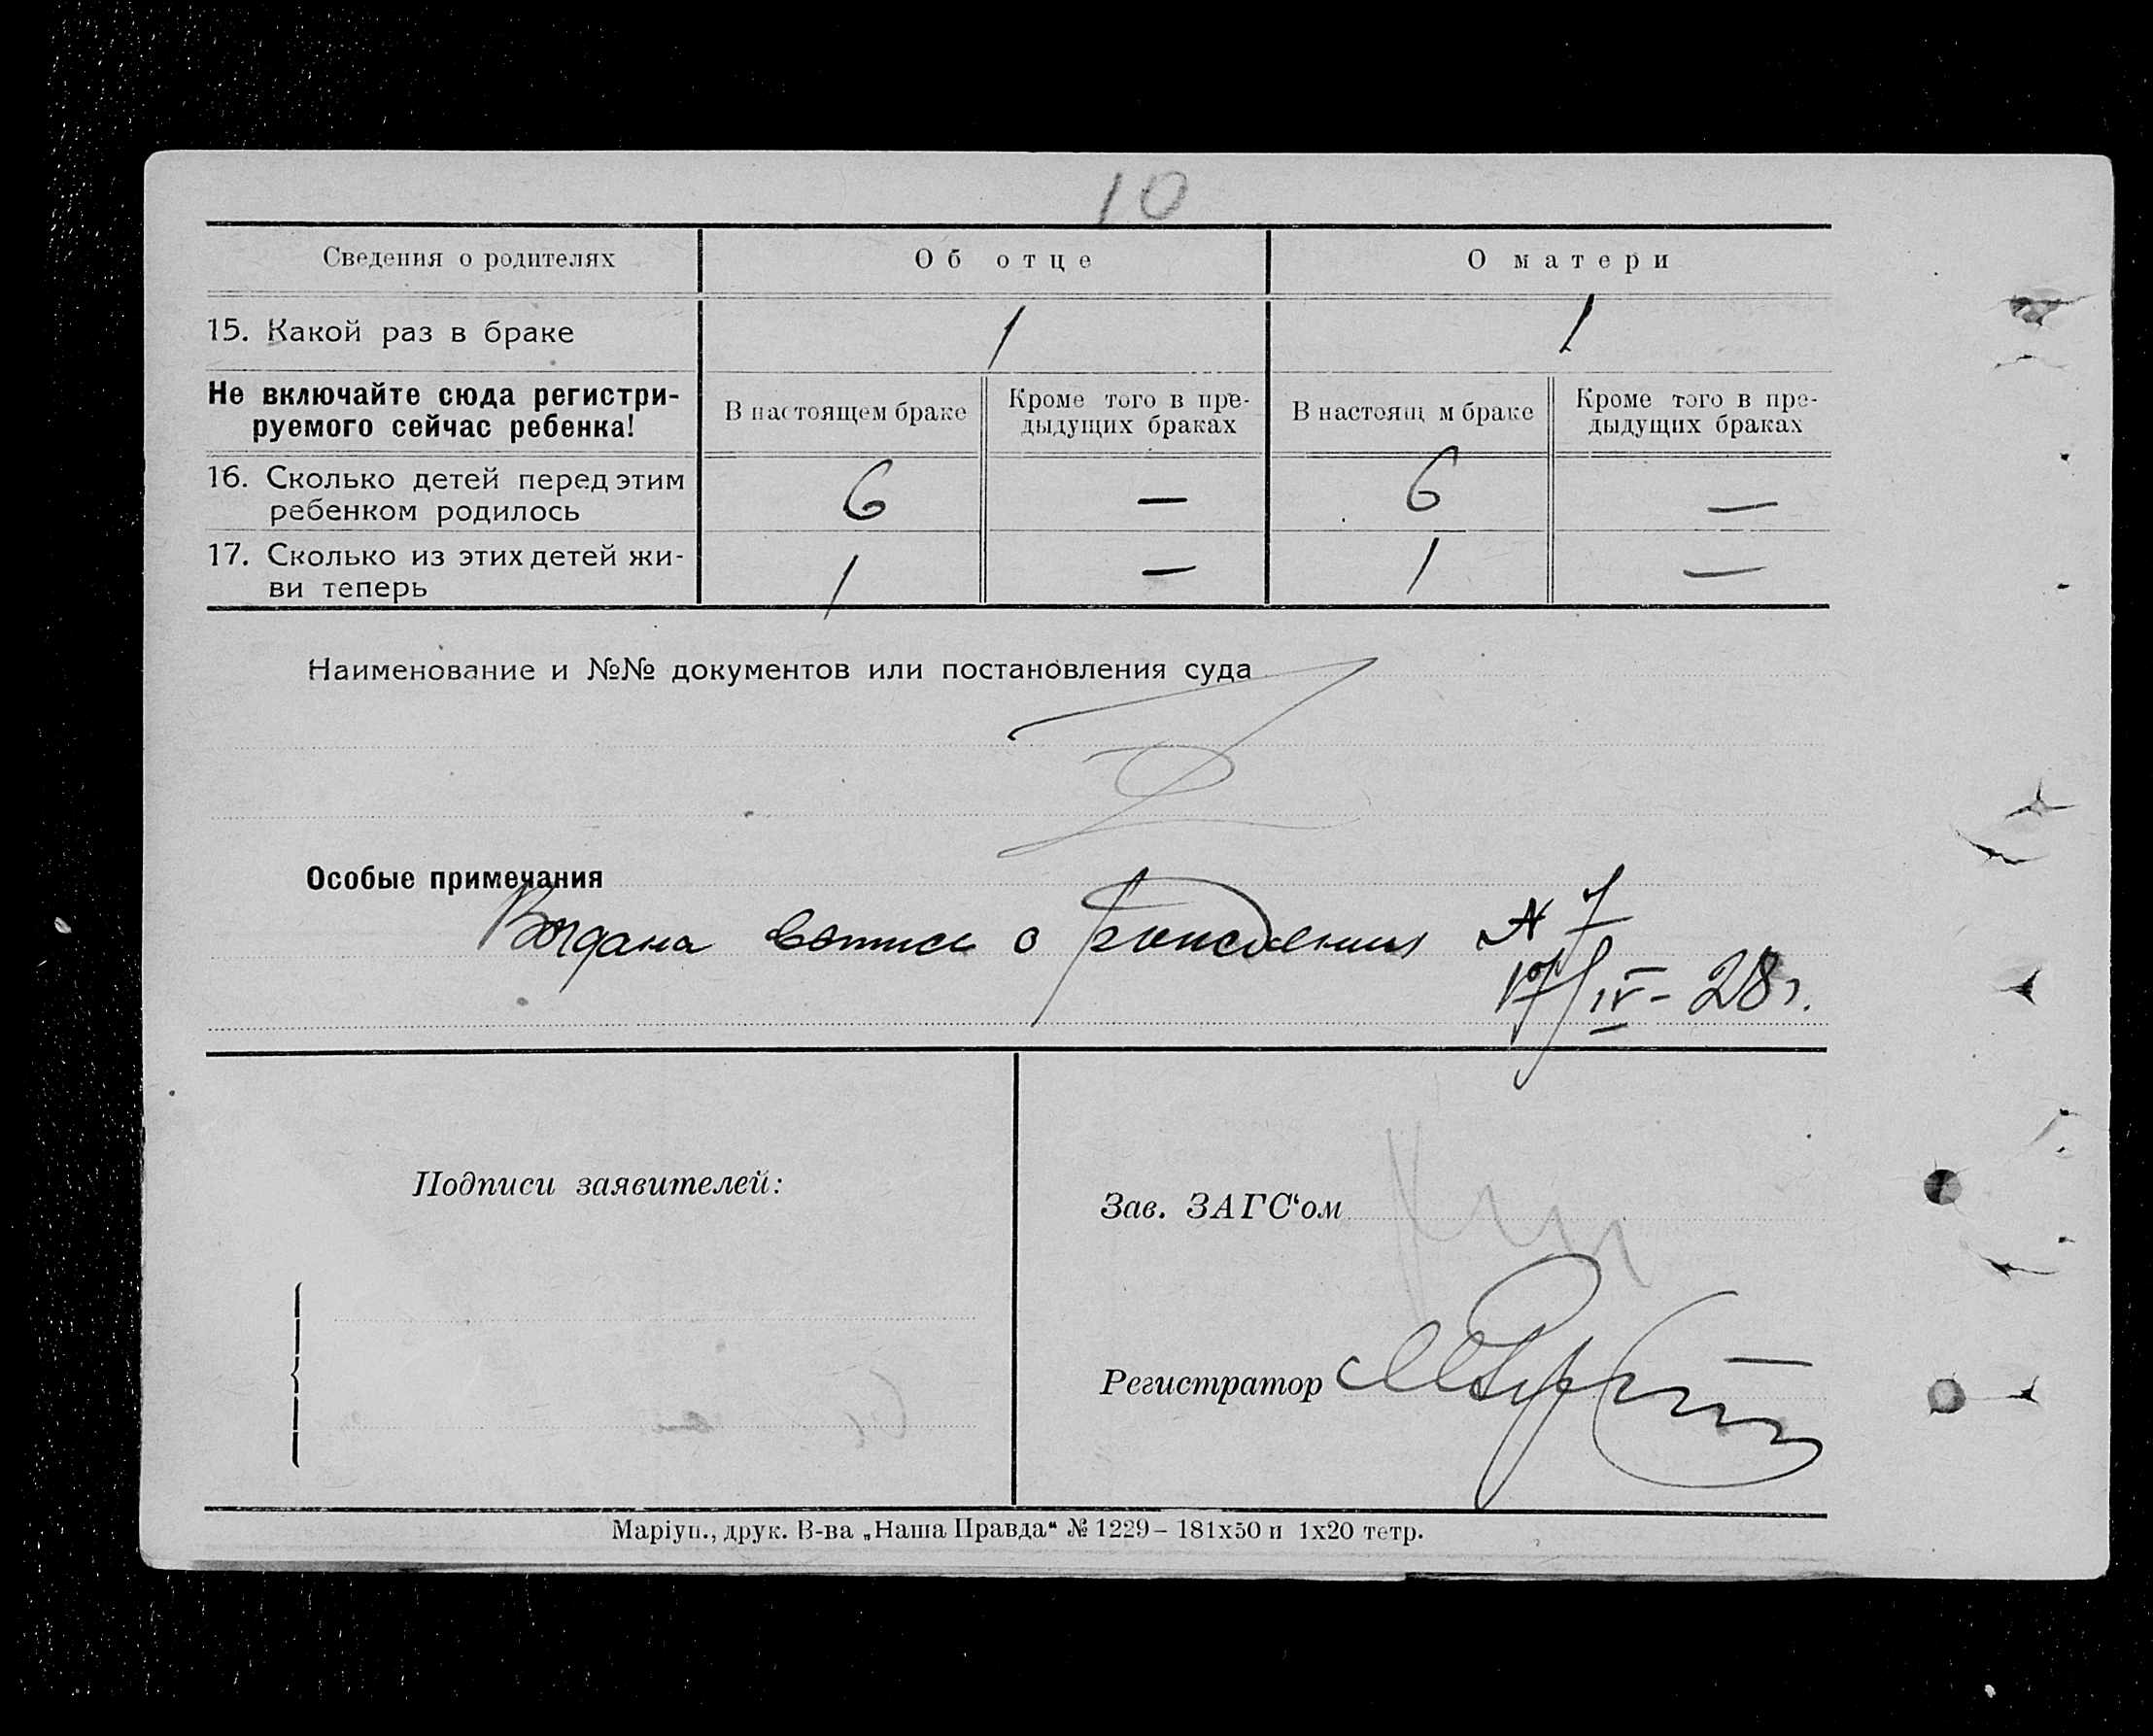 10
Сведения о родителях
Об отце
О матери
15. Какой раз в браке
1
1
Не включайте сюда регистри-
руемого сейчас ребенка!
В настоящем браке
Кроме того в пре-
дыдущих браках
В настоящ м браке
Кроме того в пре-
дыдущих браках
16. Сколько детей перед этим
ребенком родилось
6 — 6 —
17. Сколько из этих детей жи-
ви теперь
1 — 1 —
Наименование и №№ документов или постановления суда
Особые примечания
о рождении N 7
17/IV - 28 г.
Подписи заявителей:
Зав. ЗАГС‘ом
Регистратор
Маріуп., друк. В-ва „Наша Правда“ № 1229 – 181х50 и 1х20 тетр.